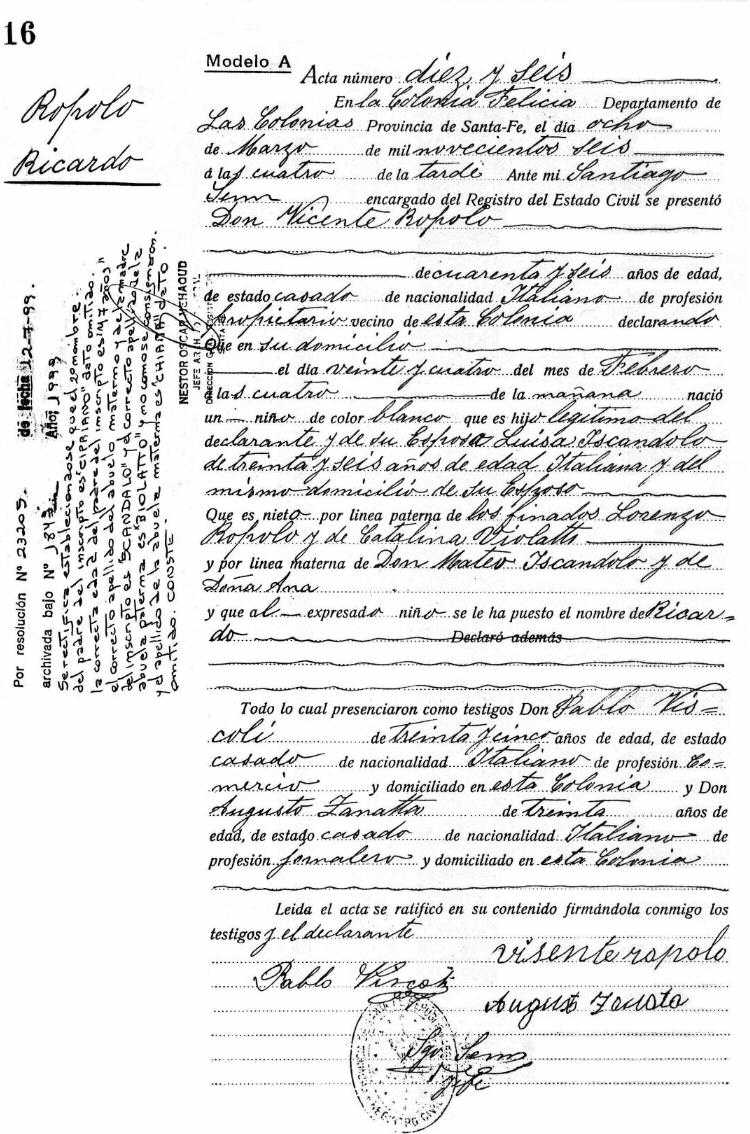 16
Ropolo
Ricardo
Modelo A
Acta número diez y seis
En la Colonia Felicia Departamento de
Las Colonias Provincia de Santa-Fe, el día ocho
de Marzo de mil novecientos seis
á las cuatro de la tarde Ante mi Santiago
Semn encargado del Registro del Estado Civil se presentó
Don Vicente Ropolo
de cuarenta y seis años de edad,
de estado casado de nacionalidad Italiano de profesión
Propietario vecino de esta Colonia declarando
Que en su domicilio
el día veinte y cuatro del mes de Febrero
á las cuatro de la mañana nació
un niño de color blanco que es hijo legítimo del
declarante y de su Esposa Luisa Iscandolo
de treinta y seis años de edad Italiana y del
mismo domicilio de su Esposo
Que es nieto por linea paterna de los finados Lorenzo
Ropolo y de Catalina Violatts
y por linea materna de Don Mateo Iscandolo y de
Doña Ana
y que al expresado niño se le ha puesto el nombre de Ricar=
do Declaró además
Todo lo cual presenciaron como testigos Don Pablo Vis=
coli de treinta y cinco años de edad, de estado
casado de nacionalidad Italiano de profesión Co=
mercio y domiciliado en esta Colonia y Don
Augusto Zanatta de treinta años de
edad, de estado casado de nacionalidad Italiano de
profesión jornalero y domiciliado en esta Colonia
Leida el acta se ratificó en su contenido firmándola conmigo los
testigos y el declarante
visente ropolo
Pablo Viscoli
August Zanata
Sgo. Semn
Jefe
Por resolución N° 23205. de fecha 12-7-99.
archivada bajo N° 1843 Año, 1999
Se rectifica estableciéndose que el 2º nombre
del padre del inscripto es "CIPRIANO" dato omitido.
la correcta edad del padre del inscripto es "47 años"
el correcto apellido del abuelo materno y de la madre
del inscripto es "SCANDALO" y el correcto apellido de la
abuela paterna es "BIOLATTO" y no como se consignaron.
y el apellido de la abuela materna es "CHIADA" dato
omitido. CONSTE
NESTOR OSCAR MICHAOUD
JEFE